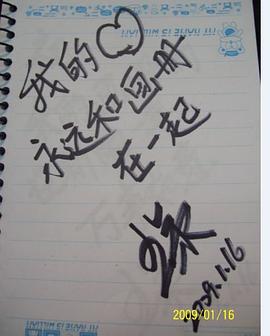 我的♡
永远和画册
在一起
2009.1.16
2009/01/16